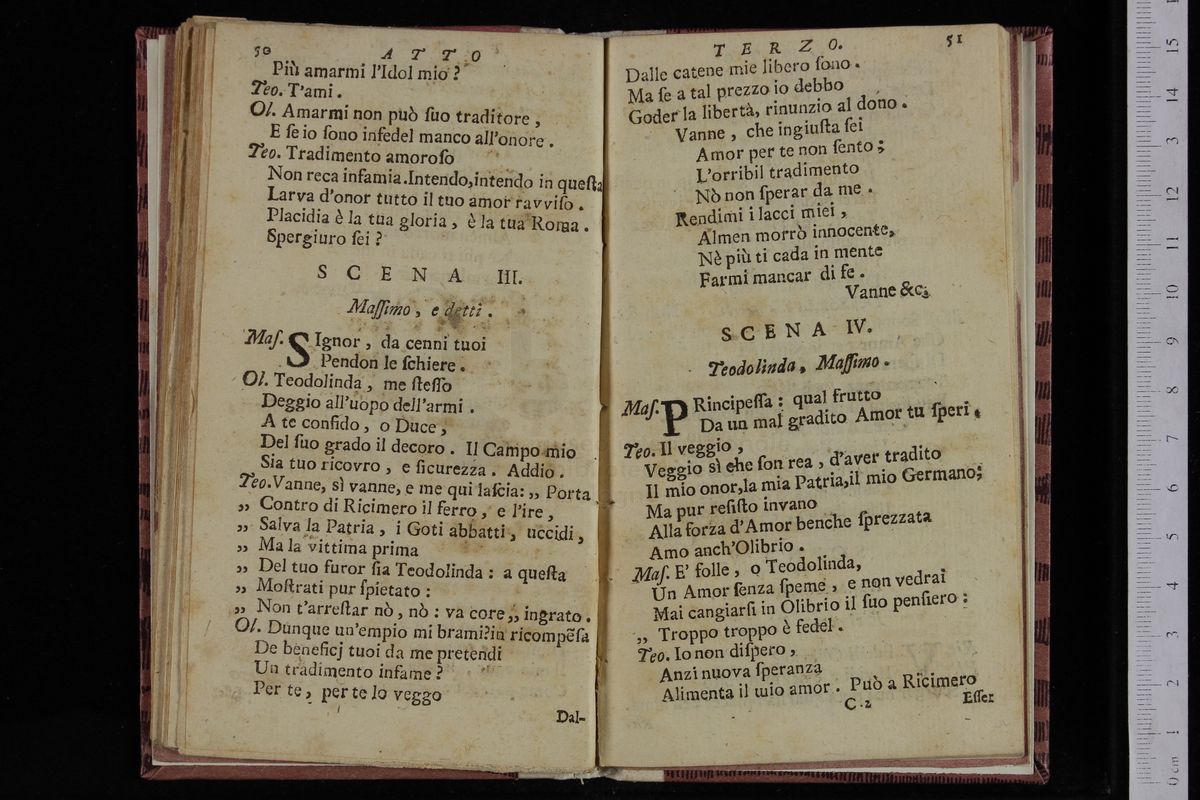 50 ATTO
Più amarmi l'Idol mio ?
Teo. T'ami .
Ol. Amarmi non può ſuo traditore ,
E ſe io ſono infedel manco all'onore .
Teo. Tradimento amoroſo
Non reca infamia.Intendo,intendo in queſta
Larva d'onor tutto il tuo amor ravviſo .
Placidia è la tua gloria , è la tua Roma .
Spergiuro ſei ?
SCENA III.
Maſſimo , e detti .
Maſ. SIgnor , da cenni tuoi
Pendon le ſchiere .
Ol. Teodolinda , me ſteſſo
Deggio all'uopo dell'armi .
A te confido , o Duce ,
Del ſuo grado il decoro . Il Campo mio
Sia tuo ricovro , e ſicurezza . Addio .
Teo.Vanne, sì vanne, e me qui laſcia: ,, Porta
,, Contro di Ricimero il ferro , e l'ire ,
,, Salva la Patria , i Goti abbatti , uccidi ,
,, Ma la vittima prima
,, Del tuo furor ſia Teodolinda : a queſta
,, Moſtrati pur ſpietato :
,, Non t'arreſtar nò , nò : va core ,, ingrato .
Ol. Dunque un'empio mi brami?in ricompẽſa
De beneficj tuoi da me pretendi
Un tradimento infame ?
Per te , per te lo veggo
Dal-
TERZO. 51
Dalle catene mie libero ſono .
Ma ſe a tal prezzo io debbo
Goder la libertà, rinunzio al dono .
Vanne , che ingiuſta ſei
Amor per te non ſento ;
L'orribil tradimento
Nò non ſperar da me .
Rendimi i lacci miei ,
Almen morrò innocente,
Nè più ti cada in mente
Farmi mancar di fe .
Vanne &c.
SCENA IV.
Teodolinda, Maſſimo .
Maſ. PRincipeſſa : qual frutto
Da un mal gradito Amor tu ſperi .
Teo. Il veggio ,
Veggio sì che ſon rea , d'aver tradito
Il mio onor,la mia Patria,il mio Germano;
Ma pur reſiſto invano
Alla forza d'Amor benche ſprezzata
Amo anch'Olibrio .
Maſ. E' folle , o Teodolinda,
Un Amor ſenza ſpeme , e non vedrai
Mai cangiarſi in Olibrio il ſuo penſiero :
,, Troppo troppo è fedel .
Teo. Io non diſpero ,
Anzi nuova ſperanza
Alimenta il mio amor . Può a Ricimero
C 2 Eſſer